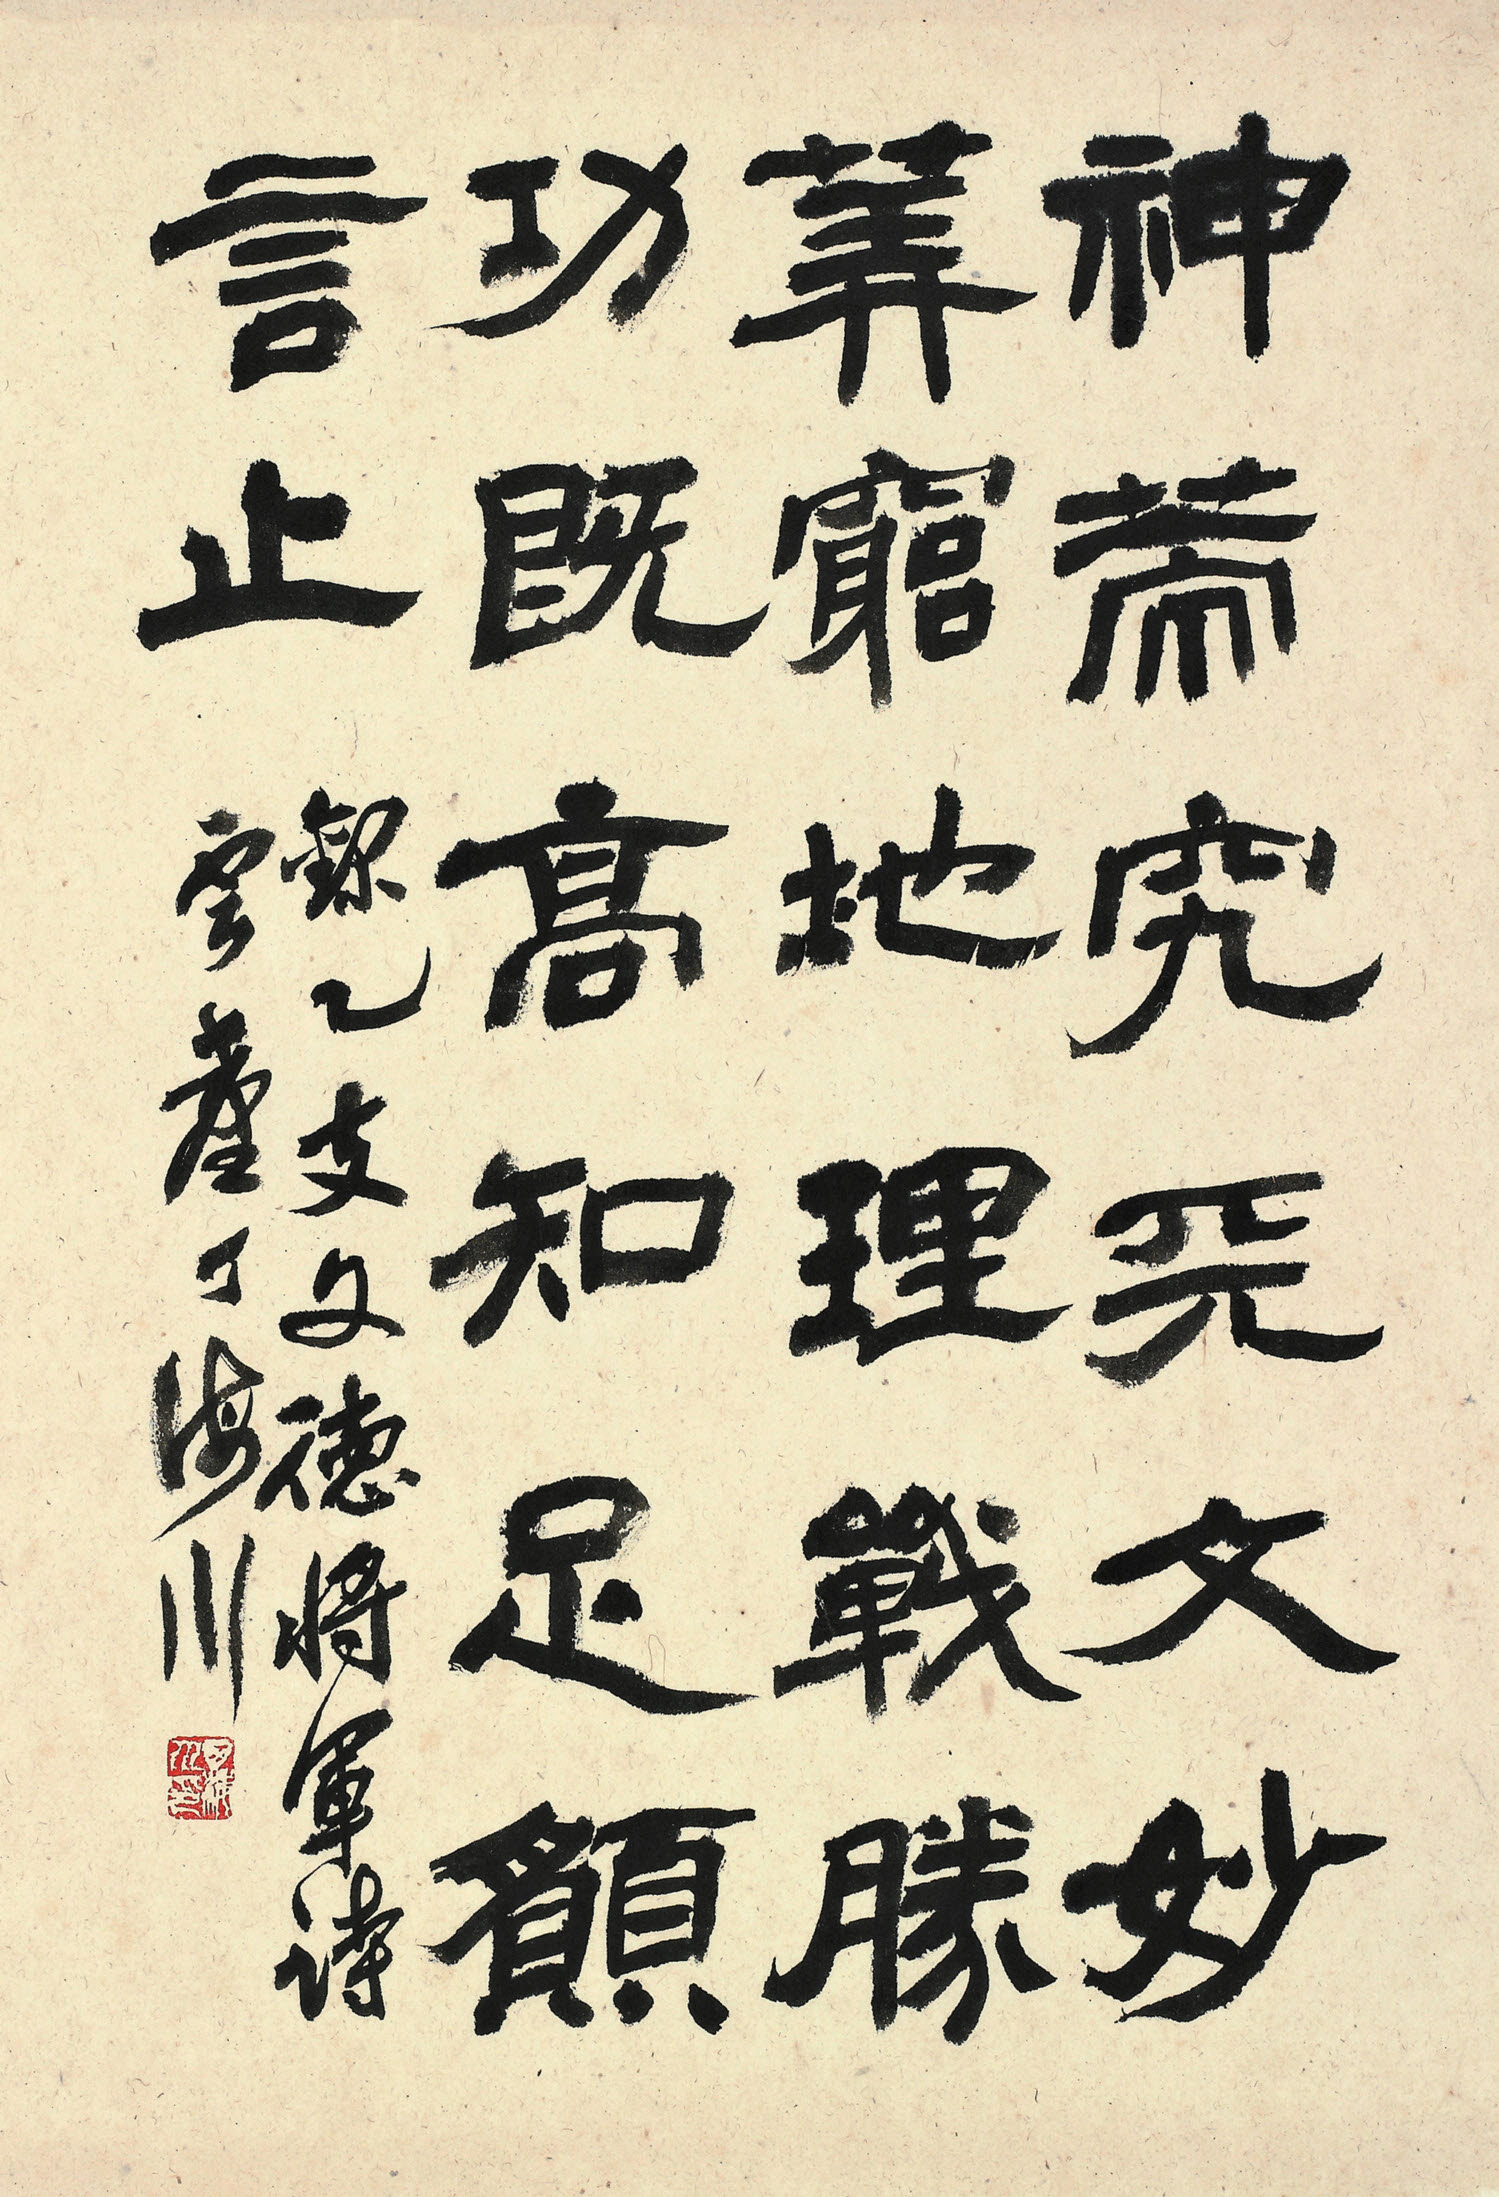 神策究天文妙
算窮地理戰勝
功既高知足願
言止
錄乙支文德將軍詩
雲 丁海川